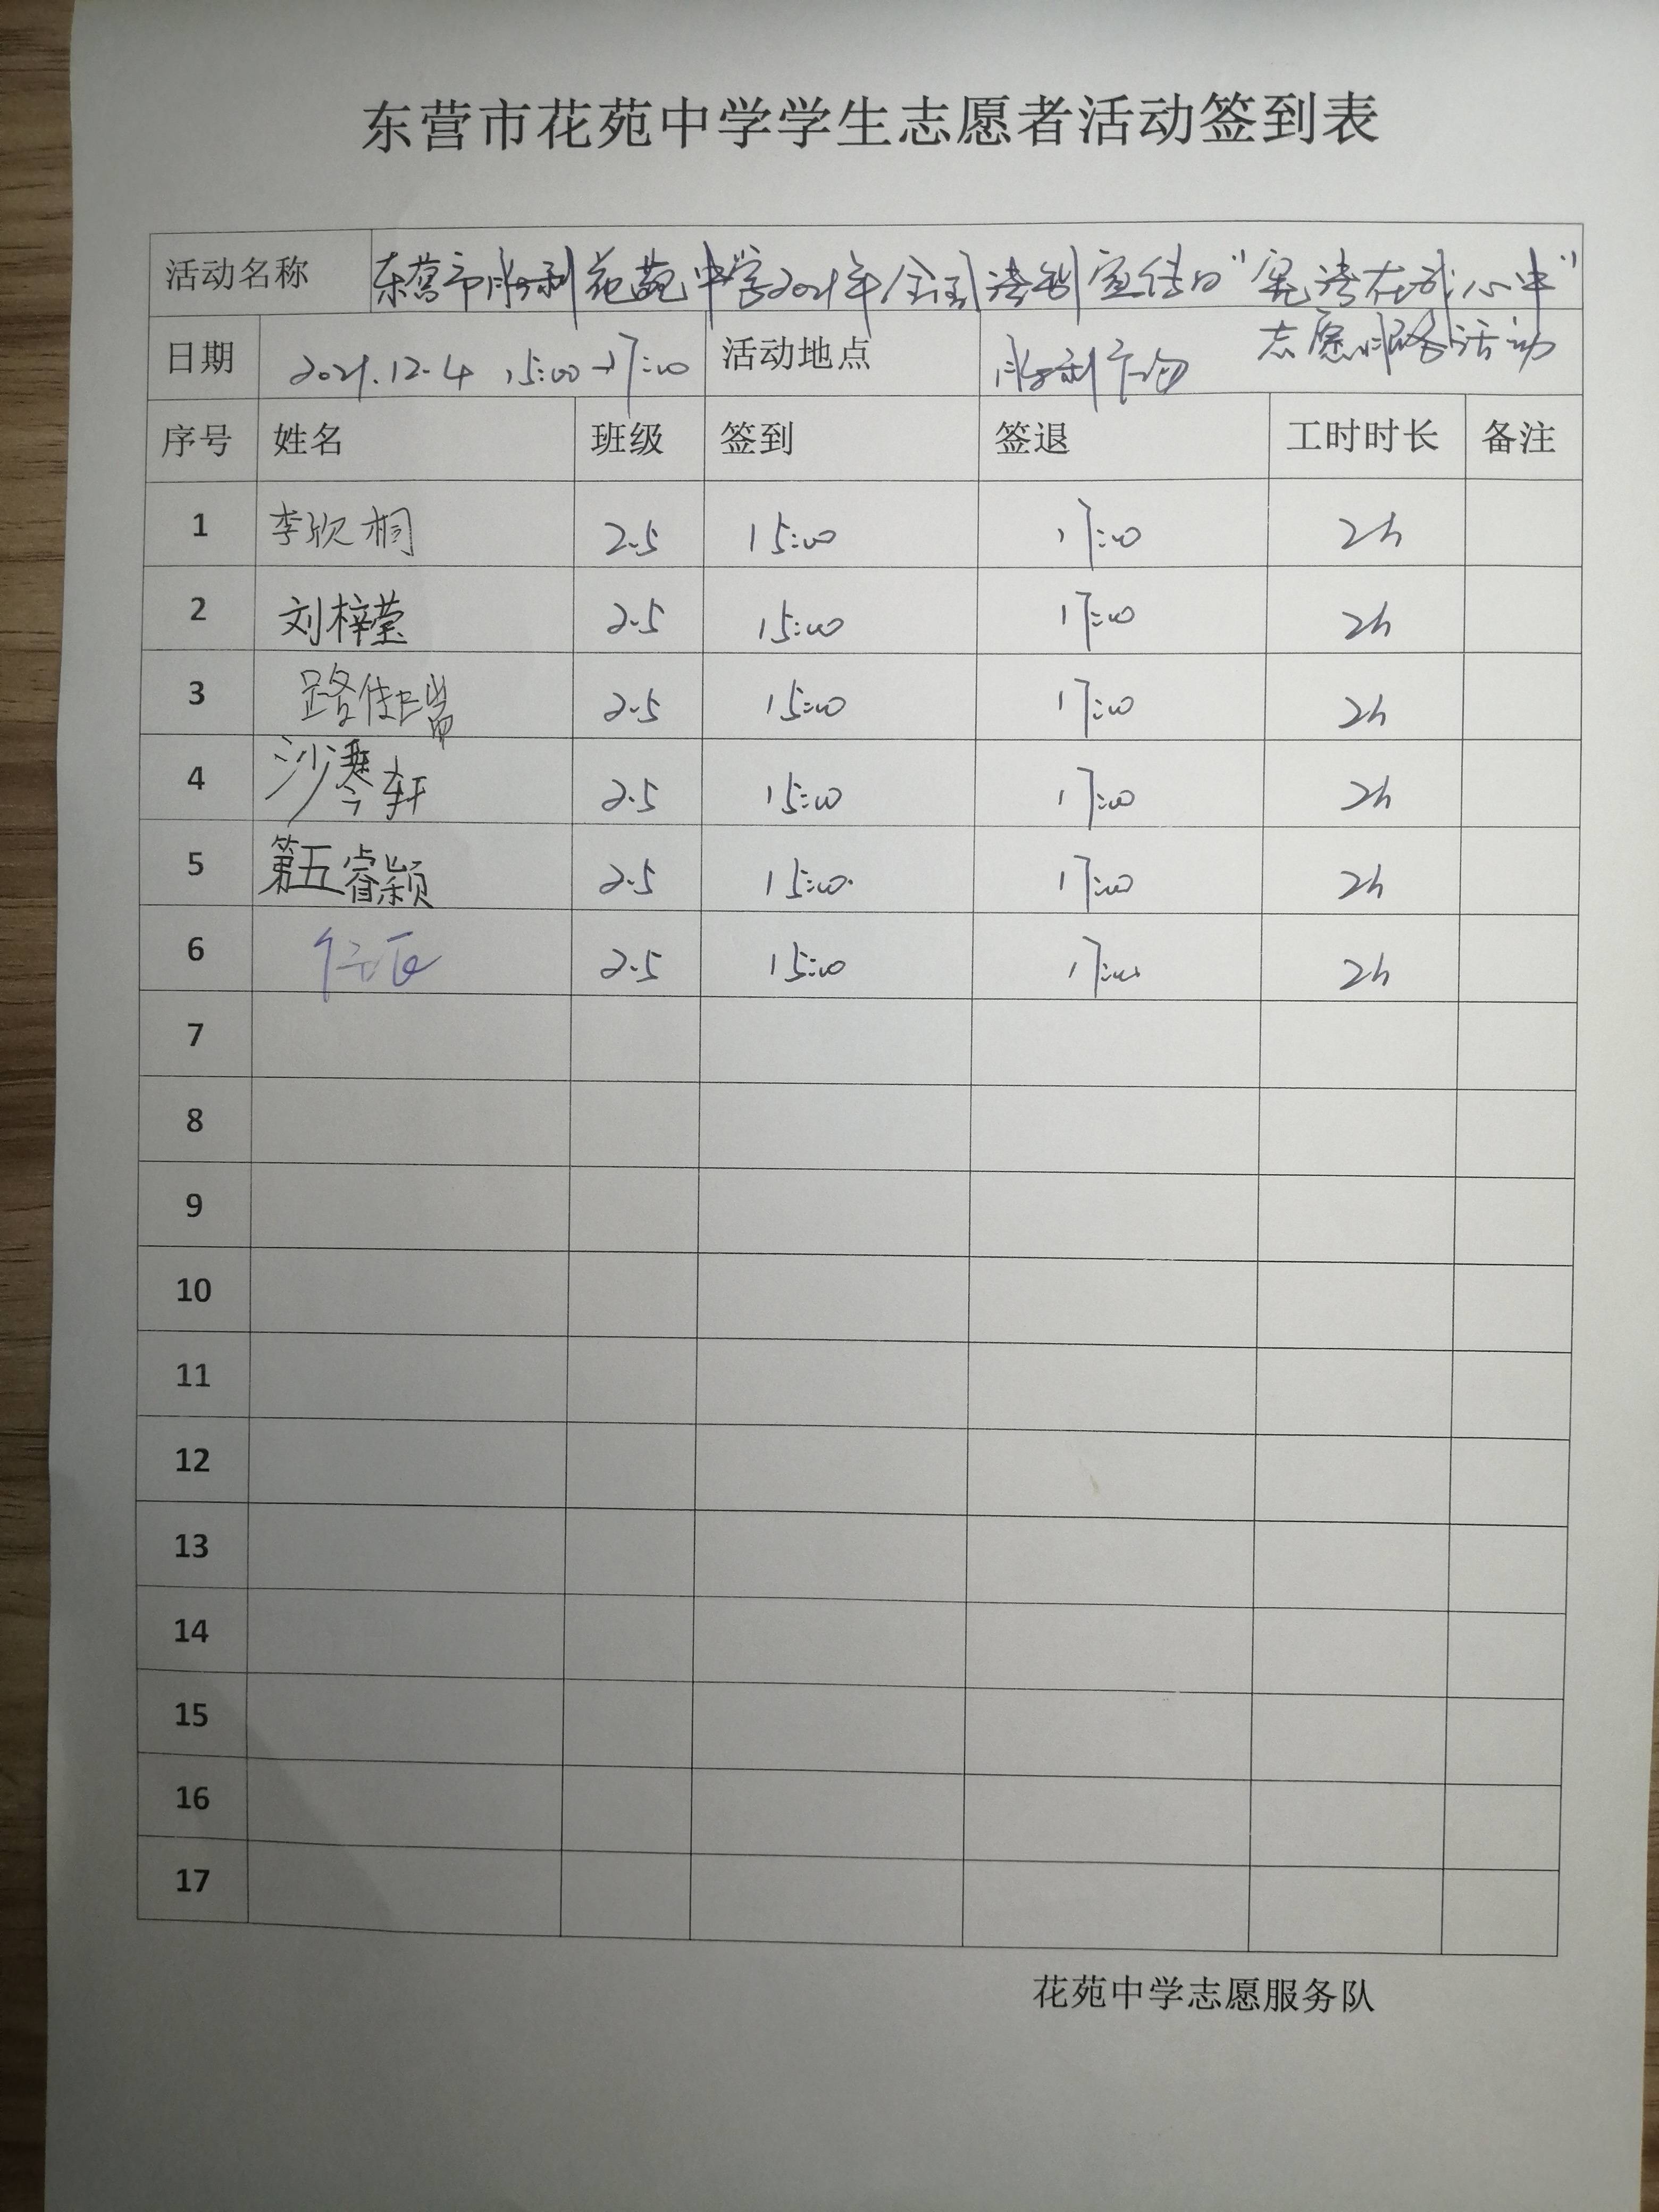 东营市花苑中学学生志愿者活动签到表
活动名称 东营市胜利花苑中学2021年全国法制宣传日"宪法在我心中"
志愿服务活动
日期 2021.12.4 15:00-17:00 活动地点 胜利广场
序号 姓名 班级 签到 签退 工时时长 备注
1 李欣桐 2.5 15:00 17:00 2h
2 刘梓莹 2.5 15:00 17:00 2h
3 路佳 2.5 15:00 17:00 2h
4 沙 轩 2.5 15:00 17:00 2h
5 第五睿颖 2.5 15:00 17:00 2h
6 2.5 15:00 17:00 2h
7
8
9
10
11
12
13
14
15
16
17
花苑中学志愿服务队